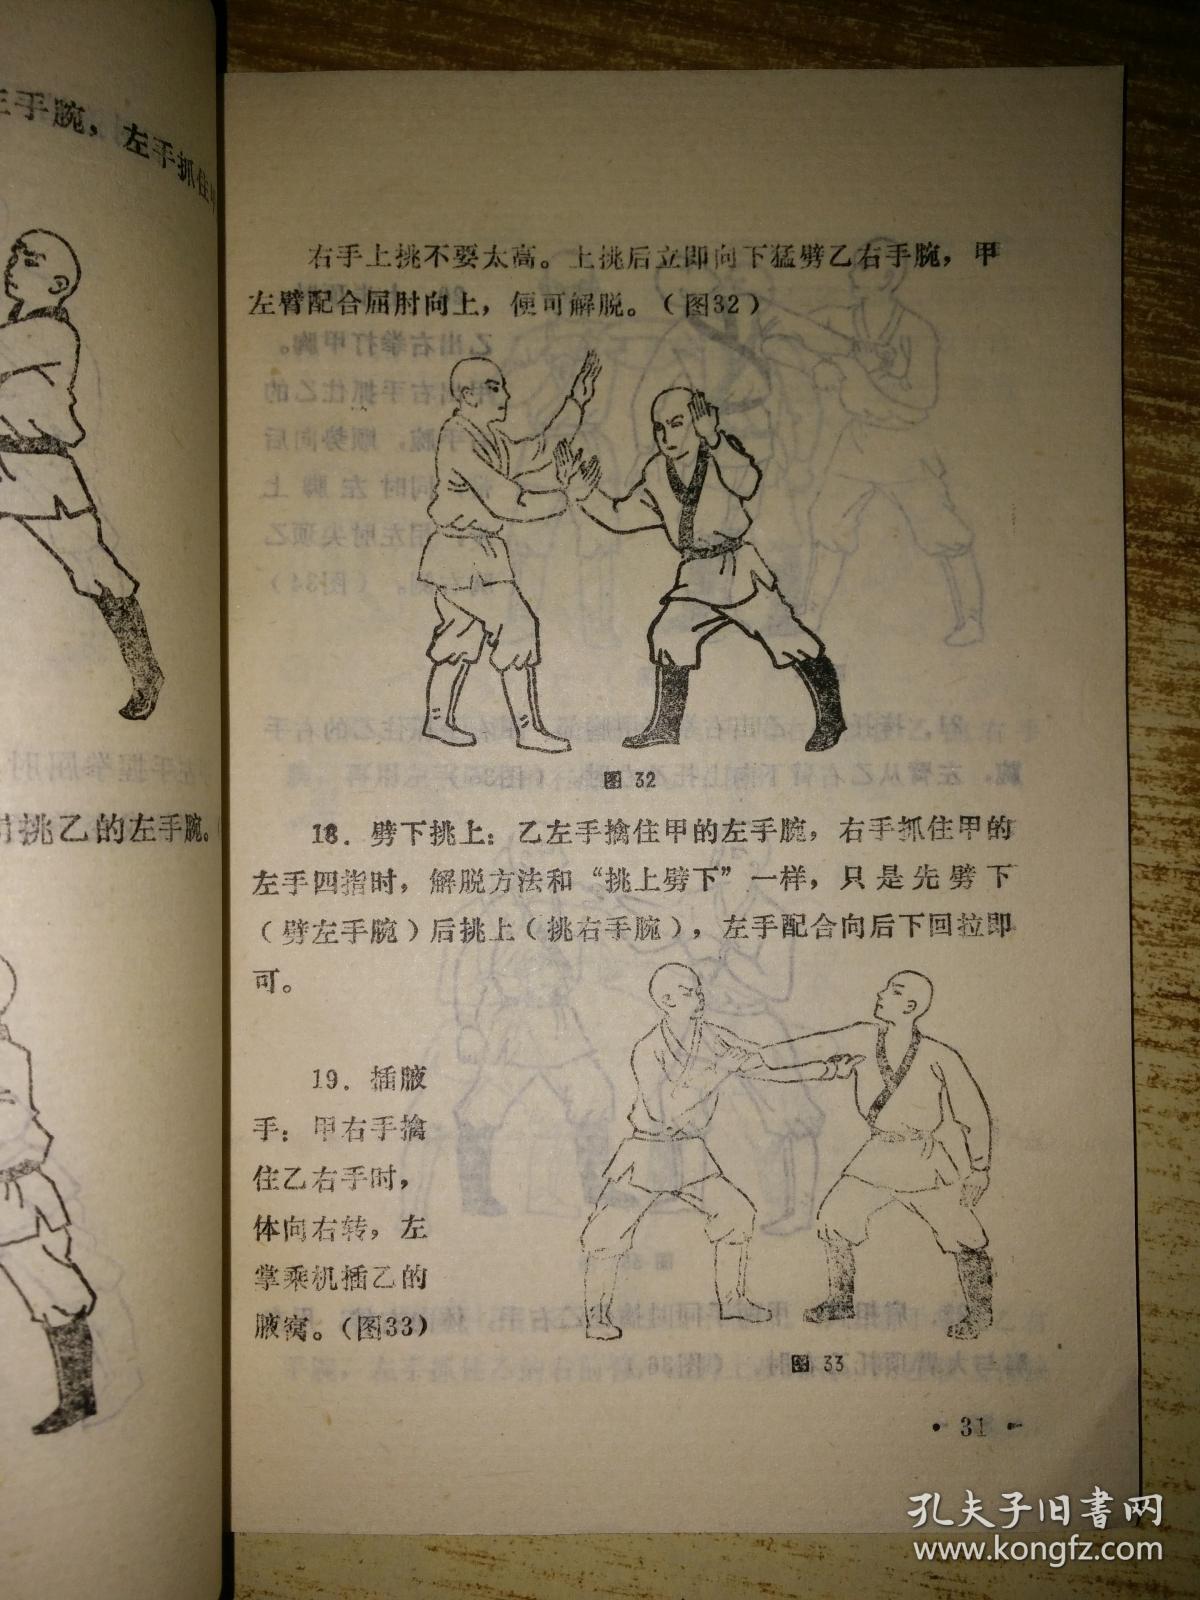 左手腕，左手抓住
右手上挑不要太高。上挑后立即向下猛劈乙右手腕，甲
左臂配合屈肘向上，便可解脱。（图32）
图 32
挑乙的左手腕。
18．劈下挑上：乙左手擒住甲的左手腕，右手抓住甲的
左手四指时，解脱方法和“挑上劈下”一样，只是先劈下
（劈左手腕）后挑上（挑右手腕），左手配合向后下回拉即
可。
19．插腋
手：甲右手擒
住乙右手时，
体向右转，左
掌乘机插乙的
腋窝。（图33）
图 33
• 31 •
孔夫子旧书网
www.kongfz.com